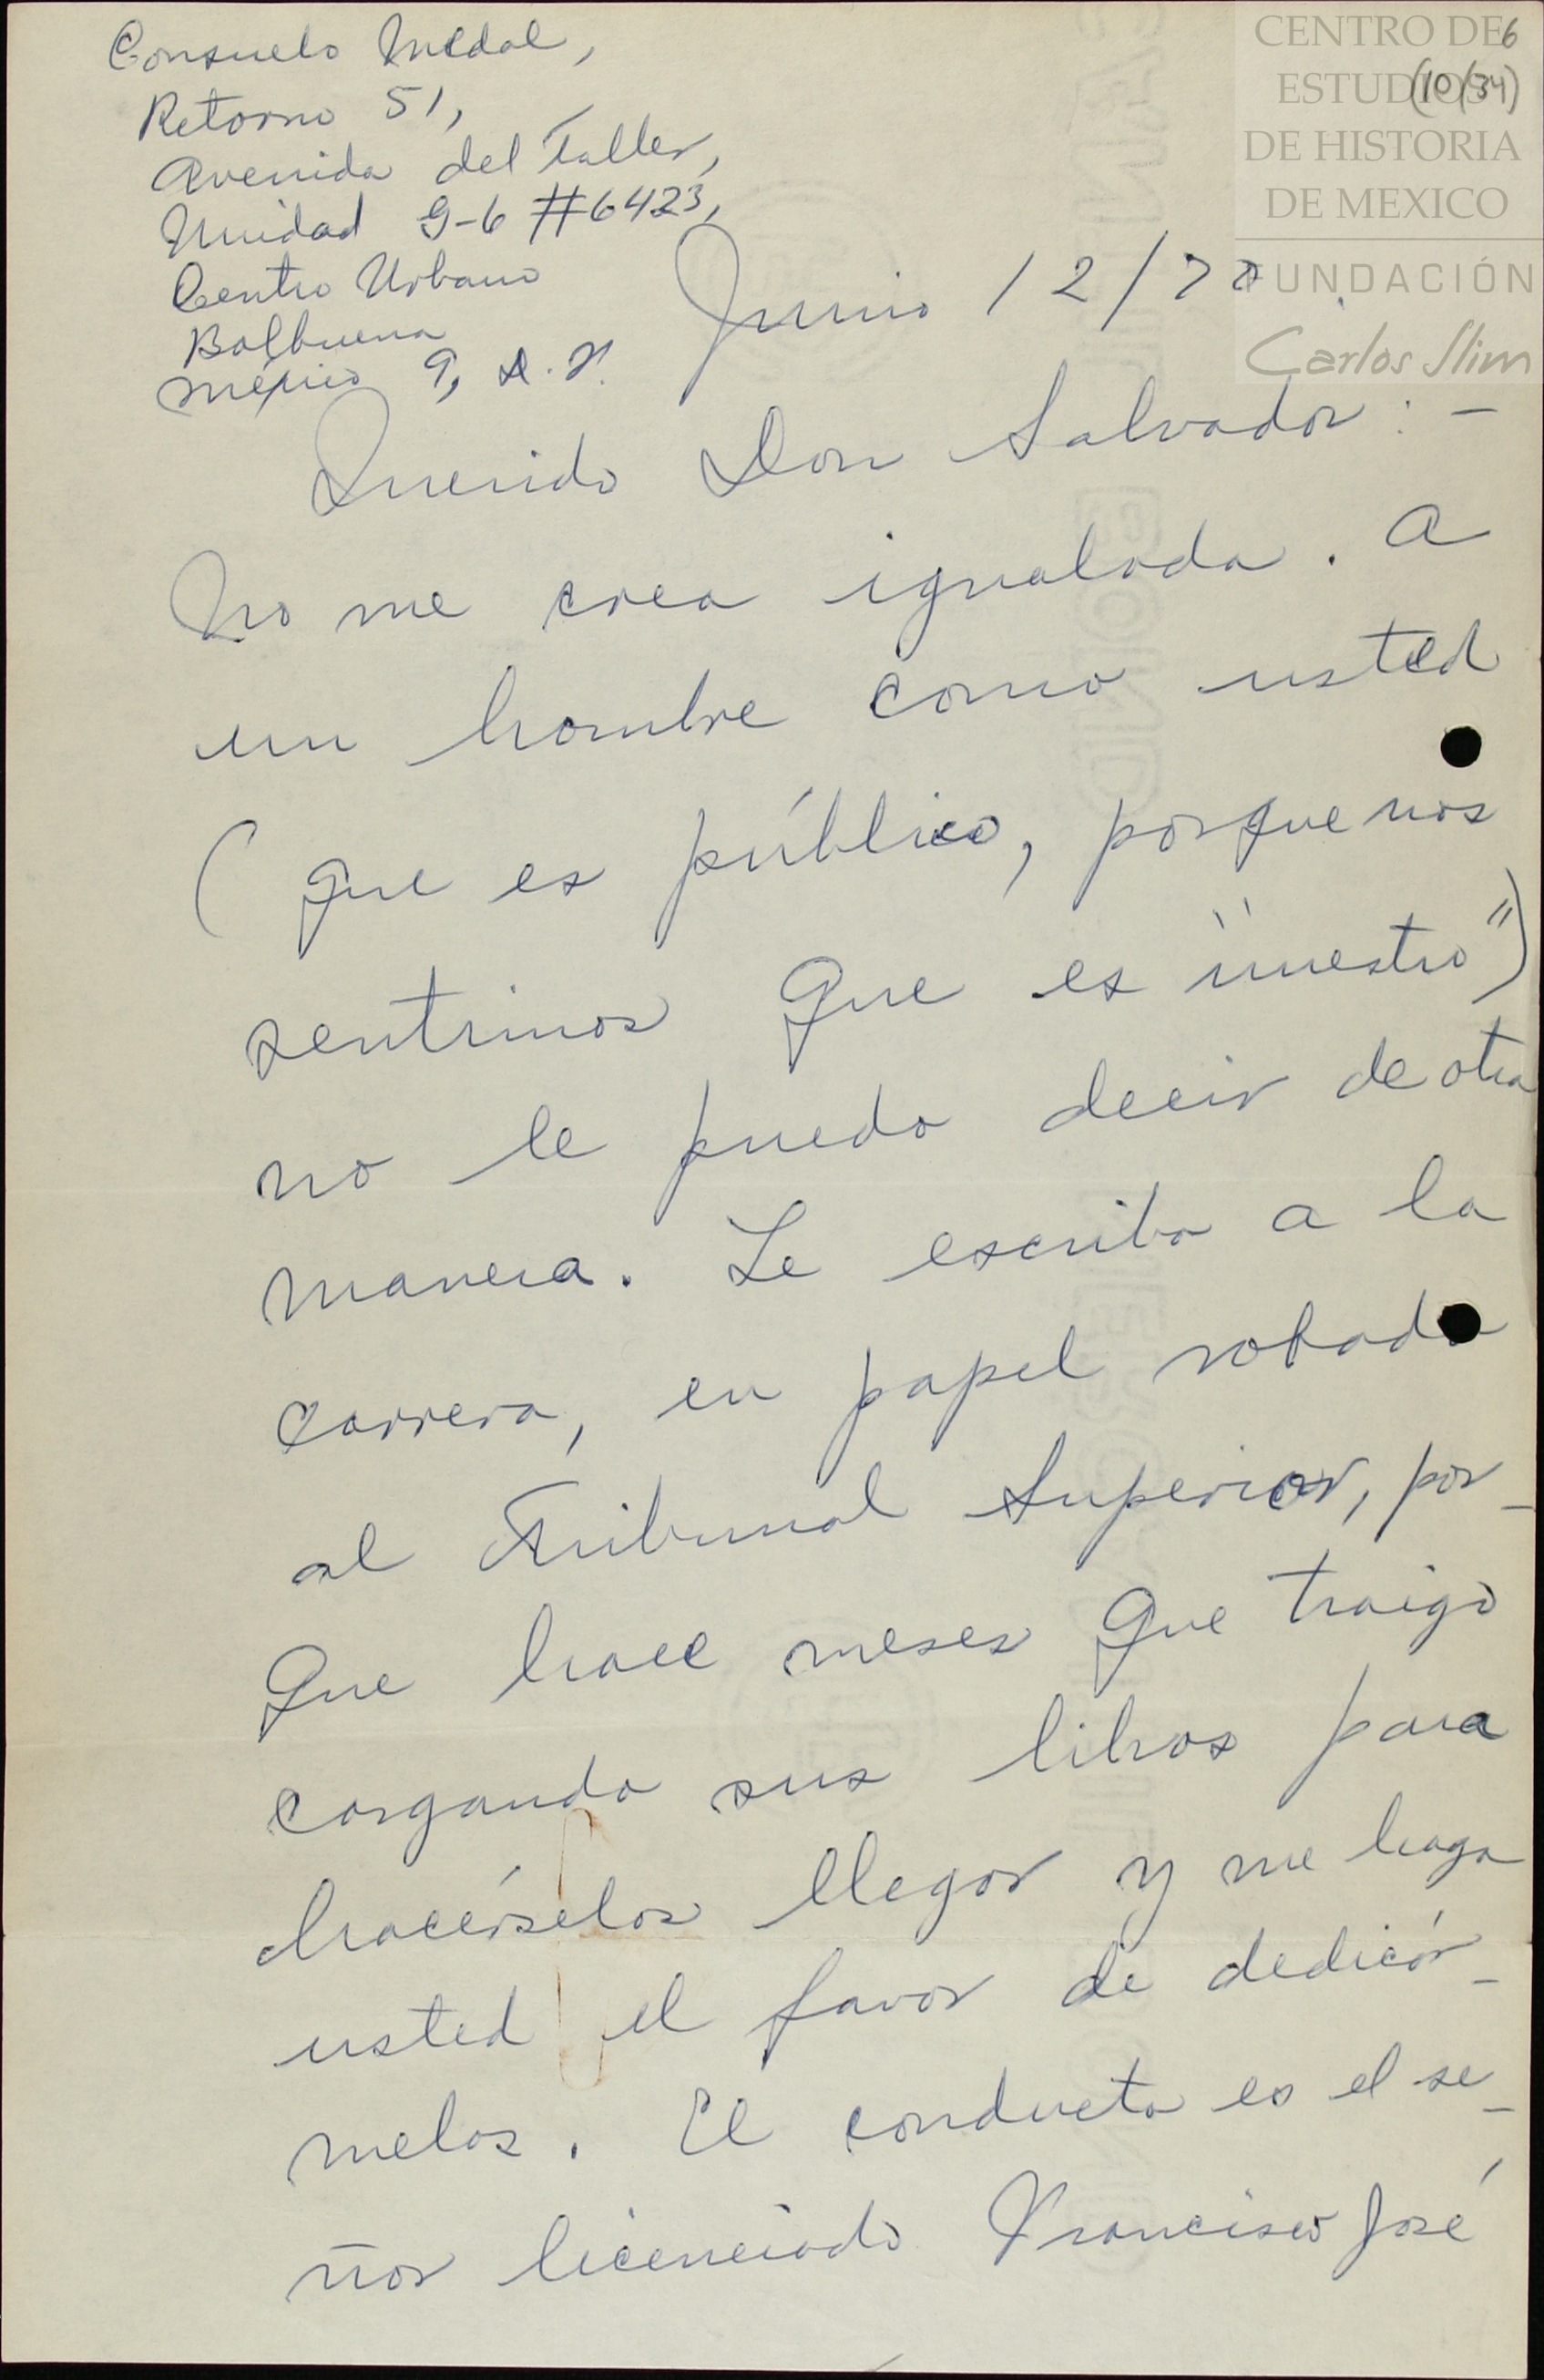 Consuelo Medal,
Retorno 51,
Avenida del Taller,
Unidad G-6 #6423,
Centro Urbano
Balbuena
México 9, D.F.
CENTRO DE
ESTUDIOS
DE HISTORIA
DE MEXICO
FUNDACIÓN
Carlos Slim
6
(10/34)
Junio 12/70
Querido Don Salvador:—
No me crea igualada. A
un hombre como usted
(que es público, porque nos
sentimos que es "nuestro")
no le puedo decir de otra
manera. Le escribo a la
carrera, en papel robado
al Tribunal Superior, por-
que hace meses que traigo
cargando sus libros para
hacérselos llegar y me haga
usted el favor de dedicár-
melos. El conducto es el se-
ñor licenciado Francisco José